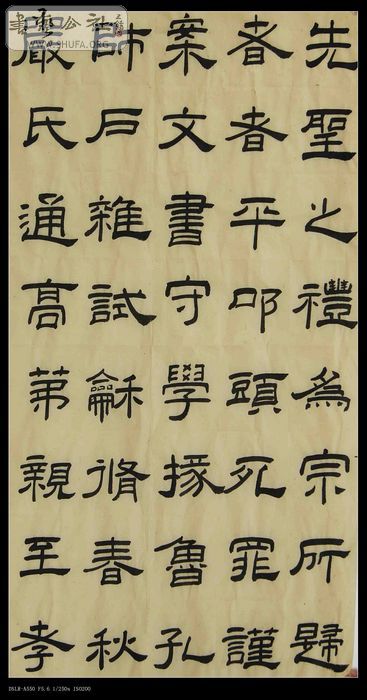 先聖之禮為宗所歸
者者平叩頭死罪謹
案文書守學掾魯孔
師戶雜試龢脩春秋
嚴氏通高苐親至孝
WWW.SHUFA.ORG
DSLR-A550 F5.6 1/250s ISO200